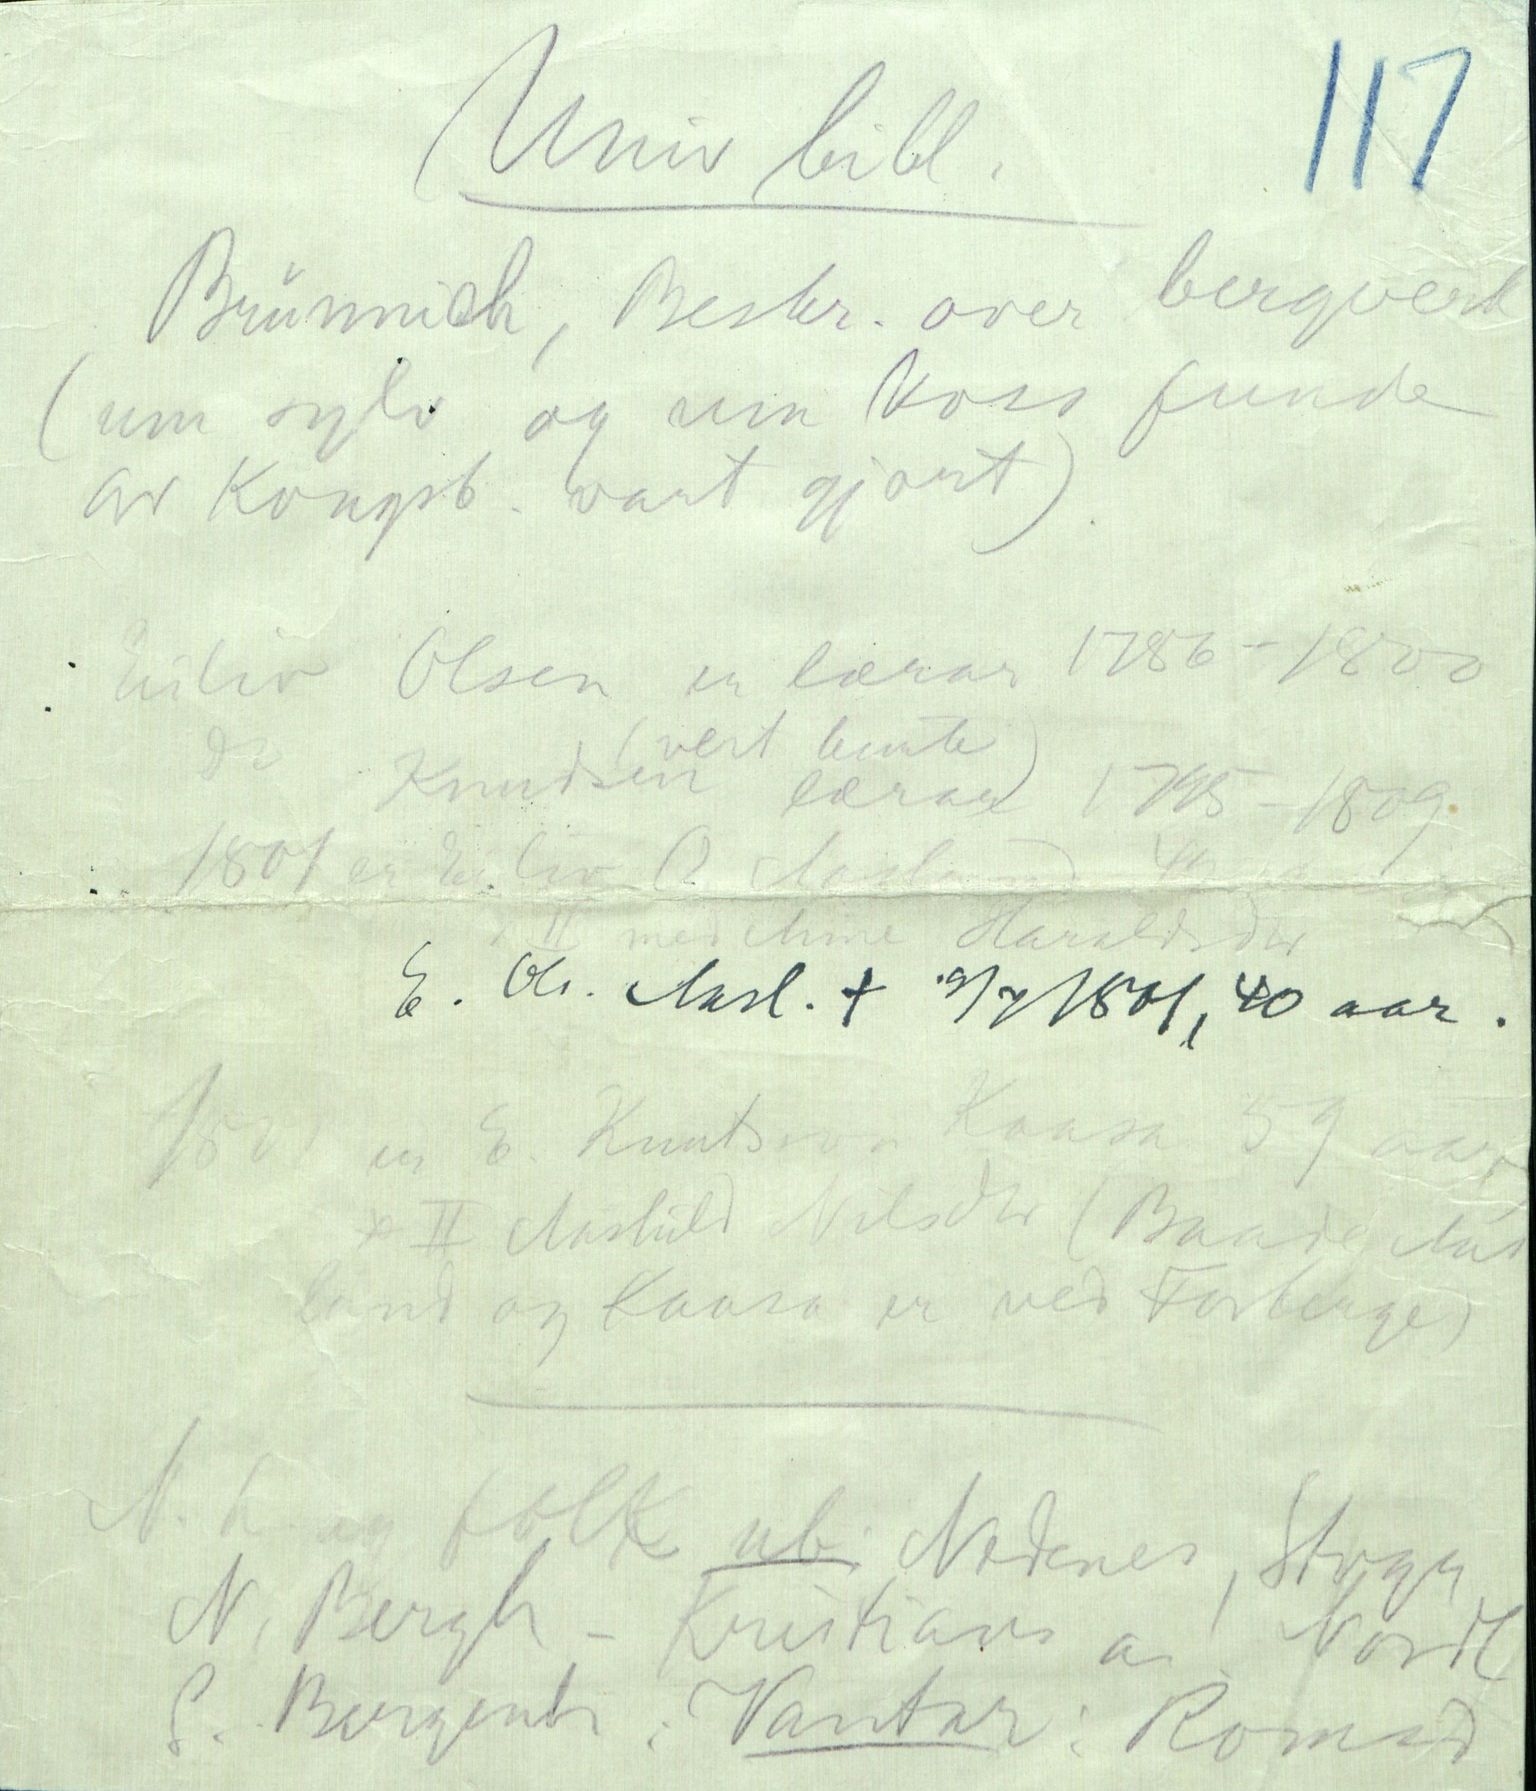 117
Univ bibl.
Brünnich, Beskr. over bergverk
(um sylv og um Voss funde
av Kongsb. vart gjort).
Eiliv Olsen er lærar 1786-1800
(vert bentt)
Do Knudsen lærar 1795-1809
1801 er Eiliv O Aasl
II med Anne Haraldsdtr
E. Ols. Aasl. + 9/7 1801, 40 aar.
1801 er E. Knutson Kaasa 59 aar,
x II Aashild Nilsdtr (Baade Aas
land og Kaasa er ved Forberge)
N. L. og folk ub. Nedenes, Stryn
N. Bergh - Kristians a. Nordl
S. Bergenh. : Vantar : Romsd